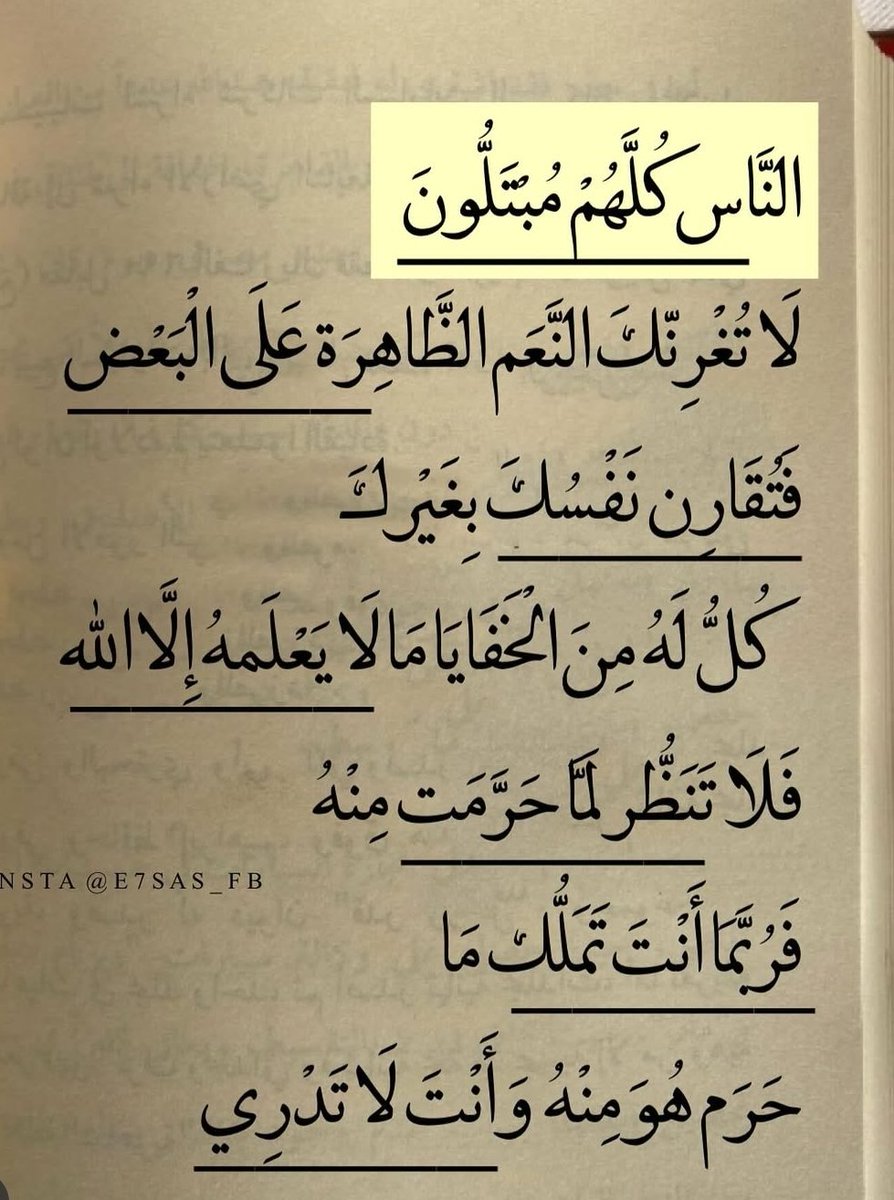 النَّاس كُلَّهُمْ مُبْتَلُّونَ
لَا تُغْرِنّكَ النَّعَم الظَّاهِرَة عَلَى الْبَعْض
فَتُقَارِن نَفْسُكَ بِغَيْركَ
كُلُّ لَهُ مِنَ الْخَفَايَا مَا لَا يَعْلَمهُ إِلَّا الله
فَلَا تَنَظُّر لمَّا حَرَّمَت مِنْهُ
NSTA @E7SAS_FB
فَرُبَّمَا أَنْتَ تَمَلُّك مَا
حَرَم هُوَ مِنْهُ وَأَنْتَ لَا تَدْرِي